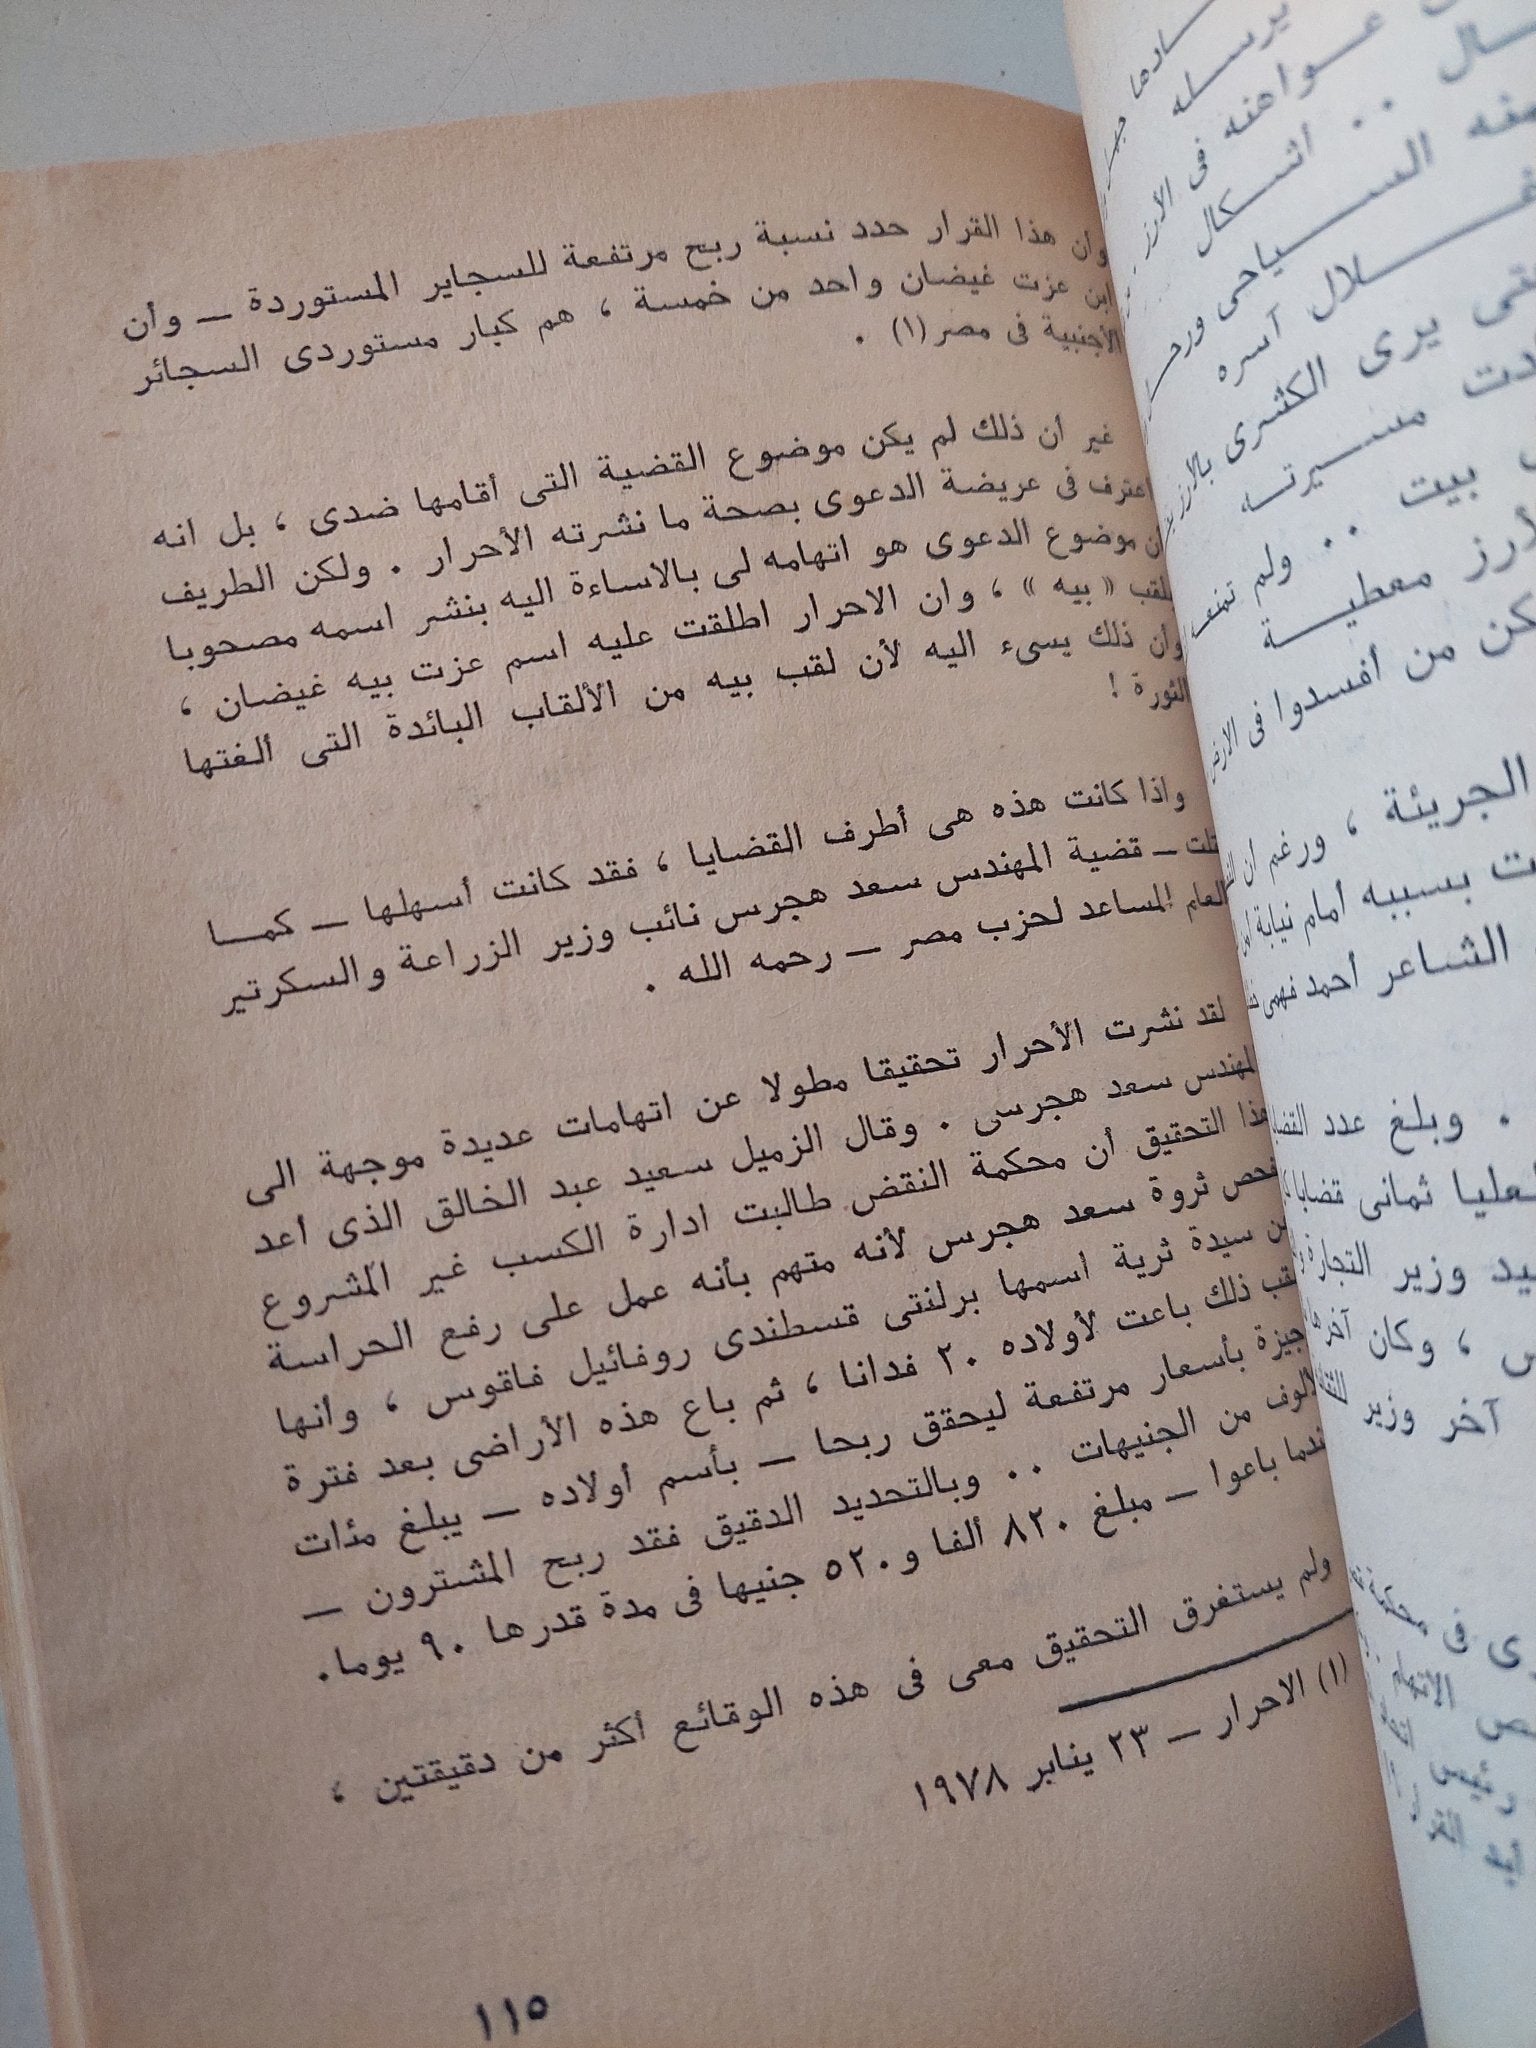 وان هذا القرار حدد نسبة ربح مرتفعة للسجاير المستوردة ــ وأن
ابن عزت غيضان واحد من خمسة ، هم كبار مستوردى السجائر
الأجنبية فى مصر (١) .
غير أن ذلك لم يكن موضوع القضية التى أقامها ضدى ، بل انه
اعترف فى عريضة الدعوى بصحة ما نشرته الأحرار . ولكن الطريف
ن موضوع الدعوى هو اتهامه لى بالاساءة اليه بنشر اسمه مصحوبا
لقب « بيه » ، وان الاحرار اطلقت عليه اسم عزت بيه غيضان ،
وأن ذلك يسىء اليه لأن لقب بيه من الألقاب البائدة التى ألغتها
الثورة !
واذا كانت هذه هى أطرف القضايا ، فقد كانت أسهلها ــ كمــا
قلت ــ قضية المهندس سعد هجرس نائب وزير الزراعة والسكرتير
العام المساعد لحزب مصر ــ رحمه الله .
لقد نشرت الأحرار تحقيقا مطولا عن اتهامات عديدة موجهة الى
لمهندس سعد هجرسى . وقال الزميل سعيد عبد الخالق الذى أعد
هذا التحقيق أن محكمة النقض طالبت ادارة الكسب غير المشروع
فحص ثروة سعد هجرس لأنه متهم بأنه عمل على رفع الحراسة
ن سيدة ثرية اسمها برلنتى قسطندى روفائيل فاقوس ، وانها
قب ذلك باعت لأولاده ٢٠ فدانا ، ثم باع هذه الأراضى بعد فترة
جيزة بأسعار مرتفعة ليحقق ربحا ــ بأسم أولاده ــ يبلغ مئات
لألوف من الجنيهات .. وبالتحديد الدقيق فقد ربح المشترون ــ
ندما باعوا ــ مبلغ ٨٢٠ ألفا و٥٢٠ جنيها فى مدة قدرها ٩٠ يوما.
ولم يستغرق التحقيق معى فى هذه الوقائع أكثر من دقيقتين ،
(١) الاحرار ــ ٢٣ يناير ١٩٧٨
١١٥
يرسله
عواهنه فى الأرز
ـال .. أشكال
منه السياحى ورحـ
ـلال آسره
تى يرى الكثرى بالأرز
ادت مسيرتـه
بيت .. ولم تمنعـ
لأرز معطيـة
كن من أفسدوا فى الأرض
الجريئة ، ورغم ان
ت بسببه أمام نيابة أمن
الشاعر أحمد فهمى
. وبلغ عدد القضايا
لعليا ثمانى قضايا
يد وزير التجارة
س ، وكان آخر
آخر وزير للثقافة
ى فى محكمة
ص الاتهام